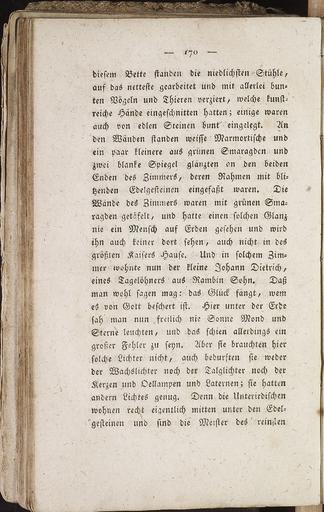 — 170 —
diesem Bette standen die niedlichsten Stühle,
auf das netteste gearbeitet und mit allerlei bun-
ten Vögeln und Thieren verziert, welche kunst-
reiche Hände eingeschnitten hatten; einige waren
auch von edlen Steinen bunt eingelegt. An
den Wänden standen weisse Marmortische und
ein paar kleinere aus grünen Smaragden und
zwei blanke Spiegel glänzten an den beiden
Enden des Zimmers, deren Rahmen mit bli-
tzenden Edelgesteinen eingefaßt waren. Die
Wände des Zimmers waren mit grünen Sma-
ragden getäfelt, und hatte einen solchen Glanz
nie ein Mensch auf Erden gesehen und wird
ihn auch keiner dort sehen, auch nicht in des
größten Kaisers Hause. Und in solchem Zim-
mer wohnte nun der kleine Johann Dietrich,
eines Tagelöhners aus Rambin Sohn. Daß
man wohl sagen mag: das Glück fängt, wem
es von Gott beschert ist. Hier unter der Erde
sah man nun freilich nie Sonne Mond und
Sterne leuchten, und das schien allerdings ein
großer Fehler zu seyn. Aber sie brauchten hier
solche Lichter nicht, auch bedurften sie weder
der Wachslichter noch der Talglichter noch der
Kerzen und Oellampen und Laternen; sie hatten
andern Lichtes genug. Denn die Unterirdischen
wohnen recht eigentlich mitten unter den Edel-
gesteinen und sind die Meister des reinsten